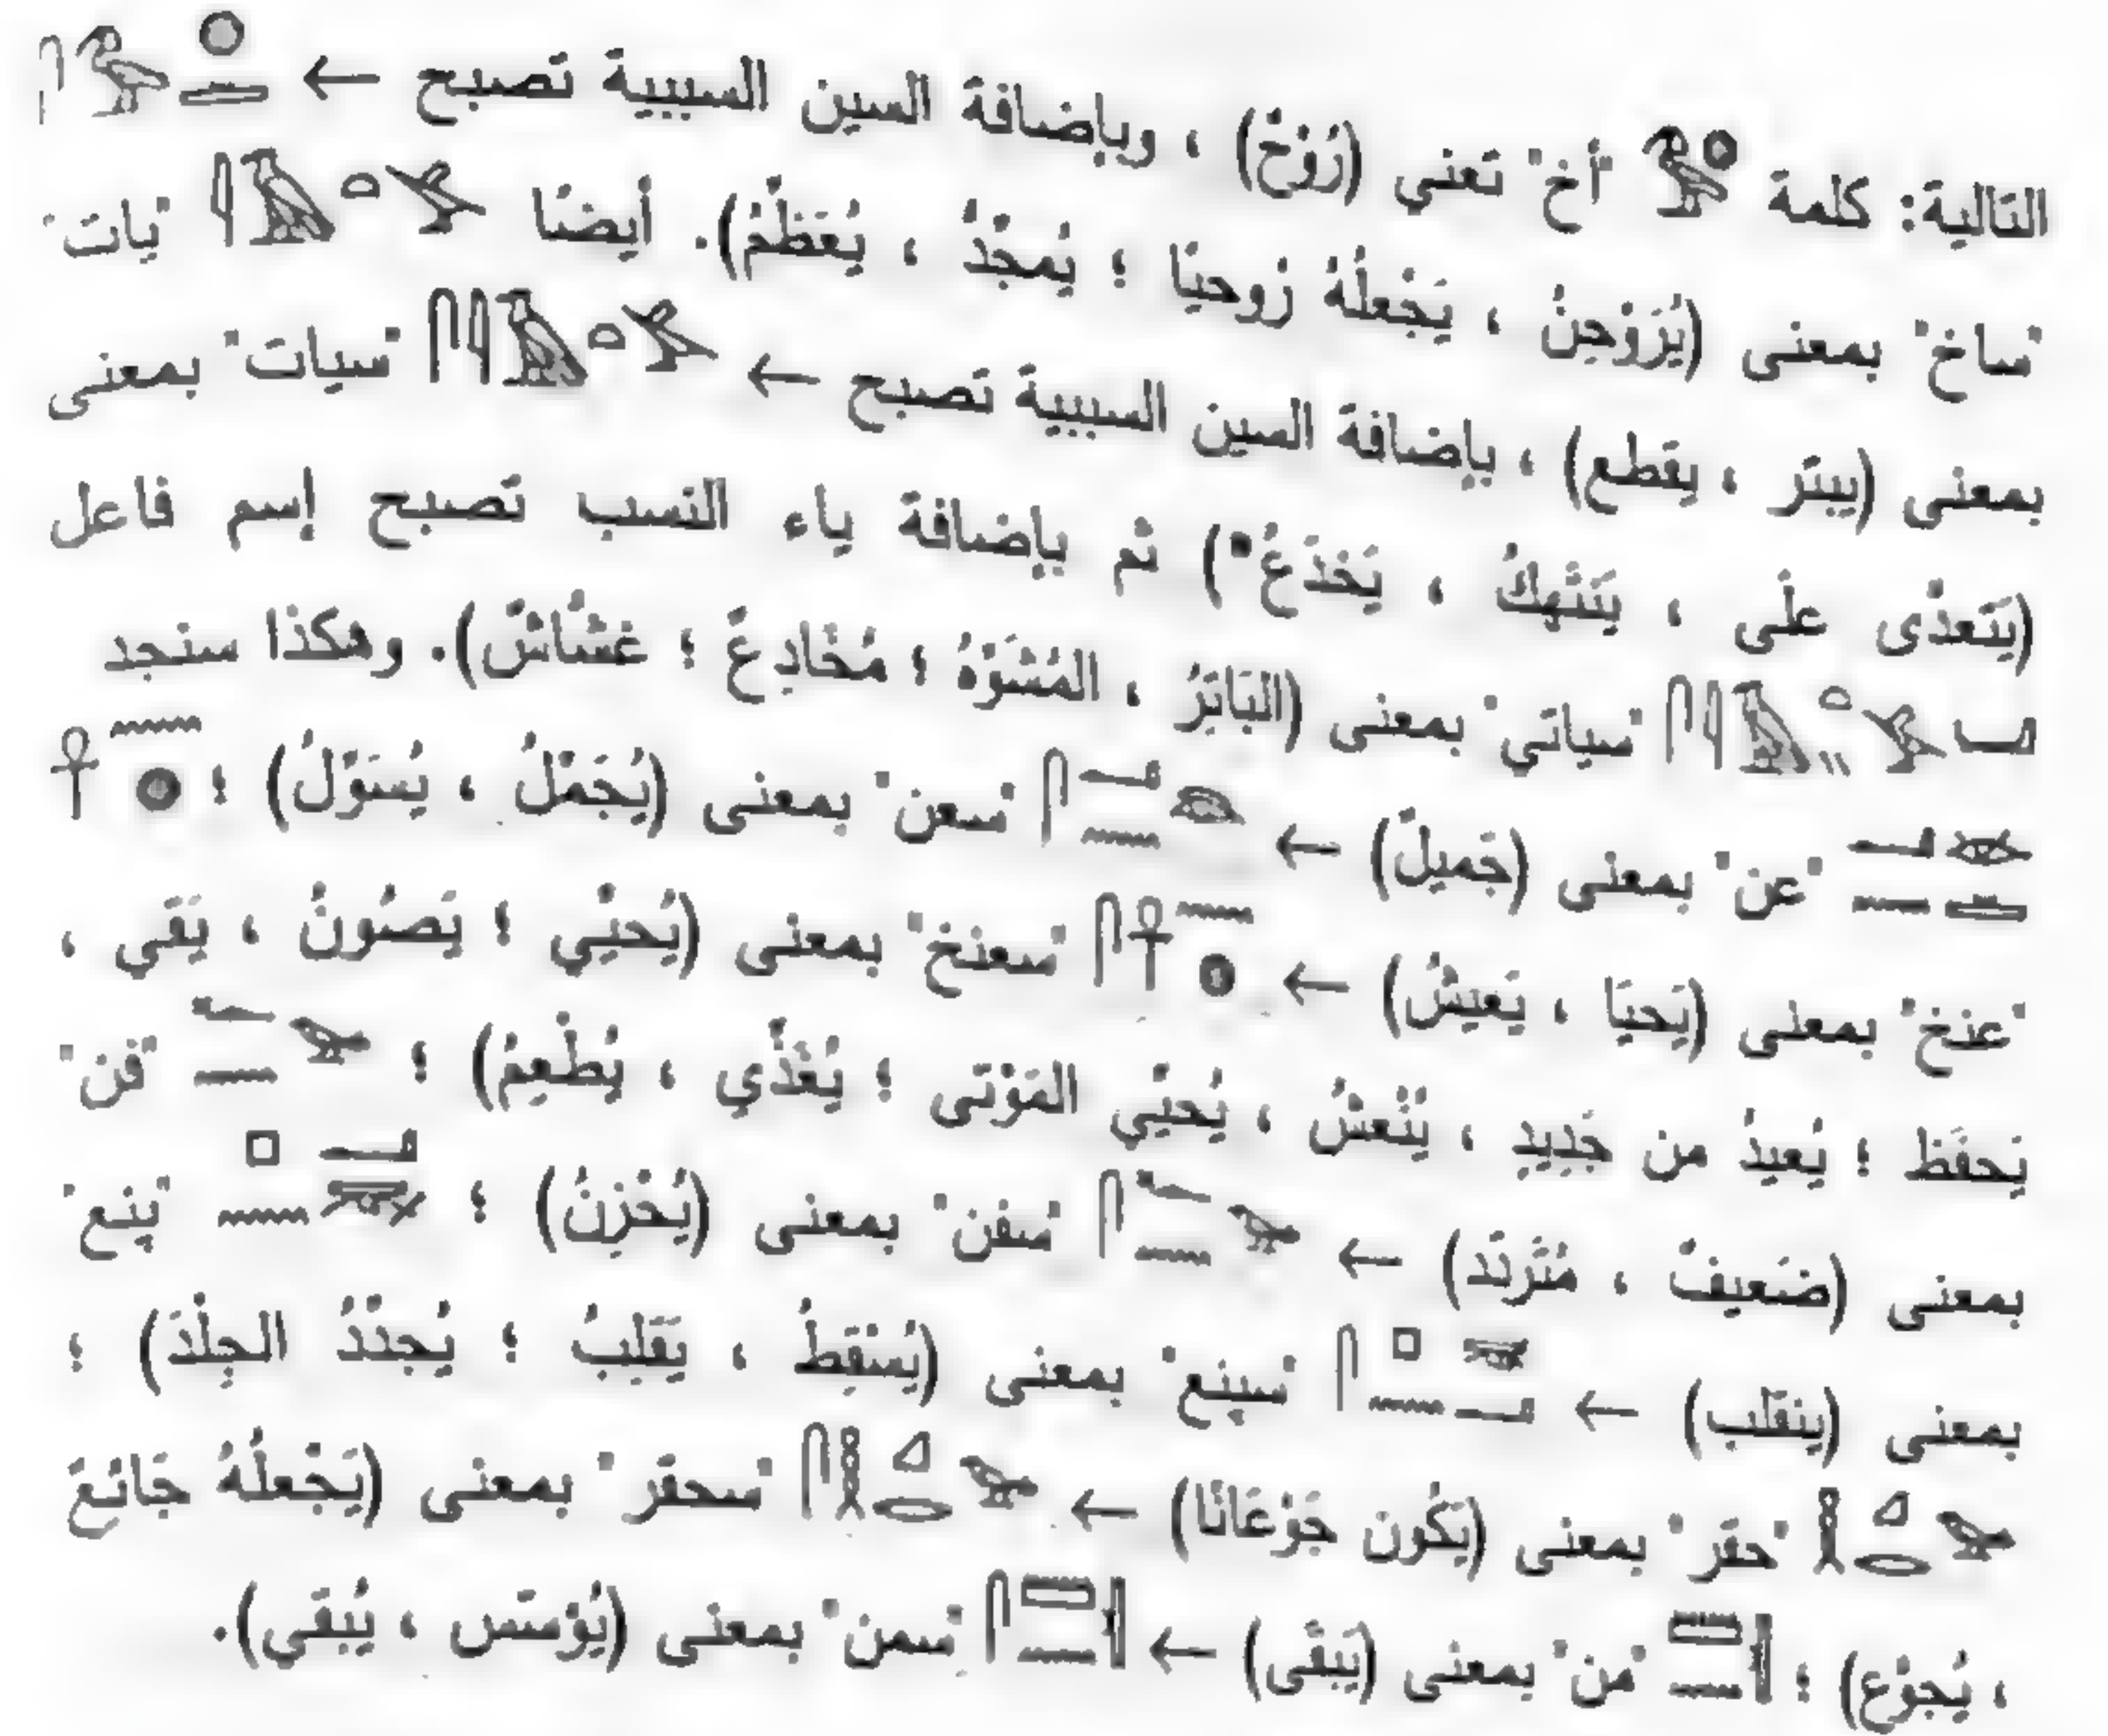 التالية: كلمة "أخ" تعني (رُوْحٌ) ، وبإضافة السين السببية تصبح ←
"ساخ" بمعنى (يُرَوْحِنُ ، يَجْعلُهُ رُوحيًا ؛ يُمجّدُ ، يُعَظّمُ). أيضًا "يات"
بمعنى (يبتر ، يقطع) ، بإضافة السين السببية تصبح ← "سيات" بمعنى
(يَتَعدّى على ، يَنْتَهِكُ ، يَخْدَعُ") ثم بإضافة ياء النسب تصبح إسم فاعل
"سياتي" بمعنى (البَاتِرُ ، المُشَوّهُ ؛ مُخَادِعٌ ؛ غشّاشٌ). وهكذا سنجد
"عن" بمعنى (جَميلٌ) ← "سعن" بمعنى (يُجَمّلُ ، يُسَوّلُ) ؛
"عنخ" بمعنى (يَحيَا ، يَعيشُ) ← "سعنخ" بمعنى (يُحيِّي ؛ يَصُونُ ، يَقي ،
يَحفَظ ؛ يُعيدُ من جَدِيدٍ ، يُنْعشُ ، يُحيِّي المَوْتى ؛ يُغَذّي ، يُطْعِمُ) ؛ "فن"
بمعنى (ضَعيفٌ ، مُتَردّد) ← "سفن" بمعنى (يُحْزِنُ) ؛ "پنع"
بمعنى (ينقلب) ← "سپنع" بمعنى (يُسْقِطُ ، يَقلِبُ ؛ يُجدّدُ الجِلْدَ) ؛
"حقر" بمعنى (يَكُون جَوْعَانًا) ← "سحقر" بمعنى (يَجْعلُهُ جَائعً
، يُجوّع) ؛ "من" بمعنى (يَبقْى) ← "سمن" بمعنى (يُؤسّس ، يُبقي).